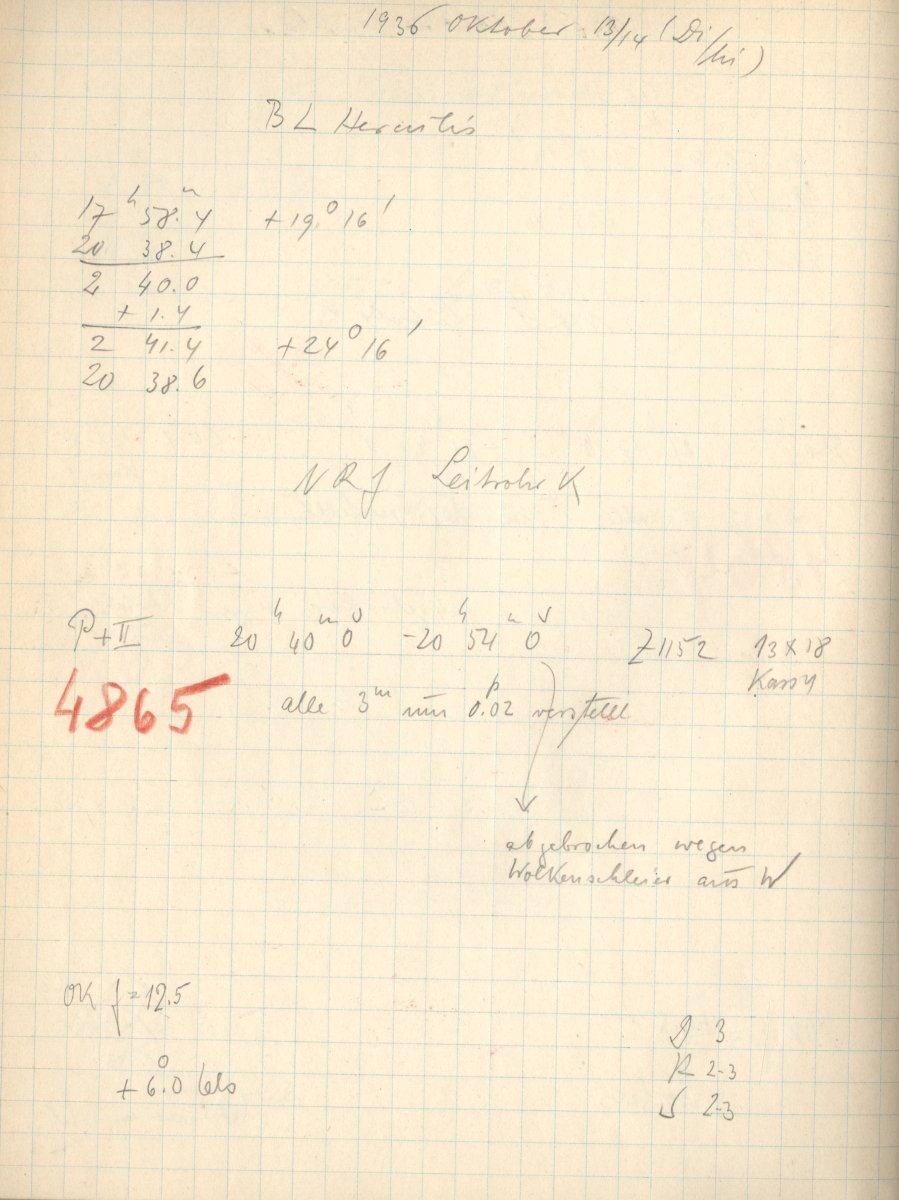 1936 Oktober 13/14 (Di/Mi)
BL Herculis
17 h 58. m 4 +19° 16'
20 38.4
2 40.0
+ 1.4
2 41.4 +24° 16'
20 38.6
Leitrohr K
P+II 20 h 40 m 0 s -20 h 54 m 0 s Z 1152 13x18
4865 alle 3 m um 0.02 verstellt
abgebrochen wegen
Wolkenschleier aus W
OK f=12.5
+6.0° Cels
D 3
R 2-3
S 2-3